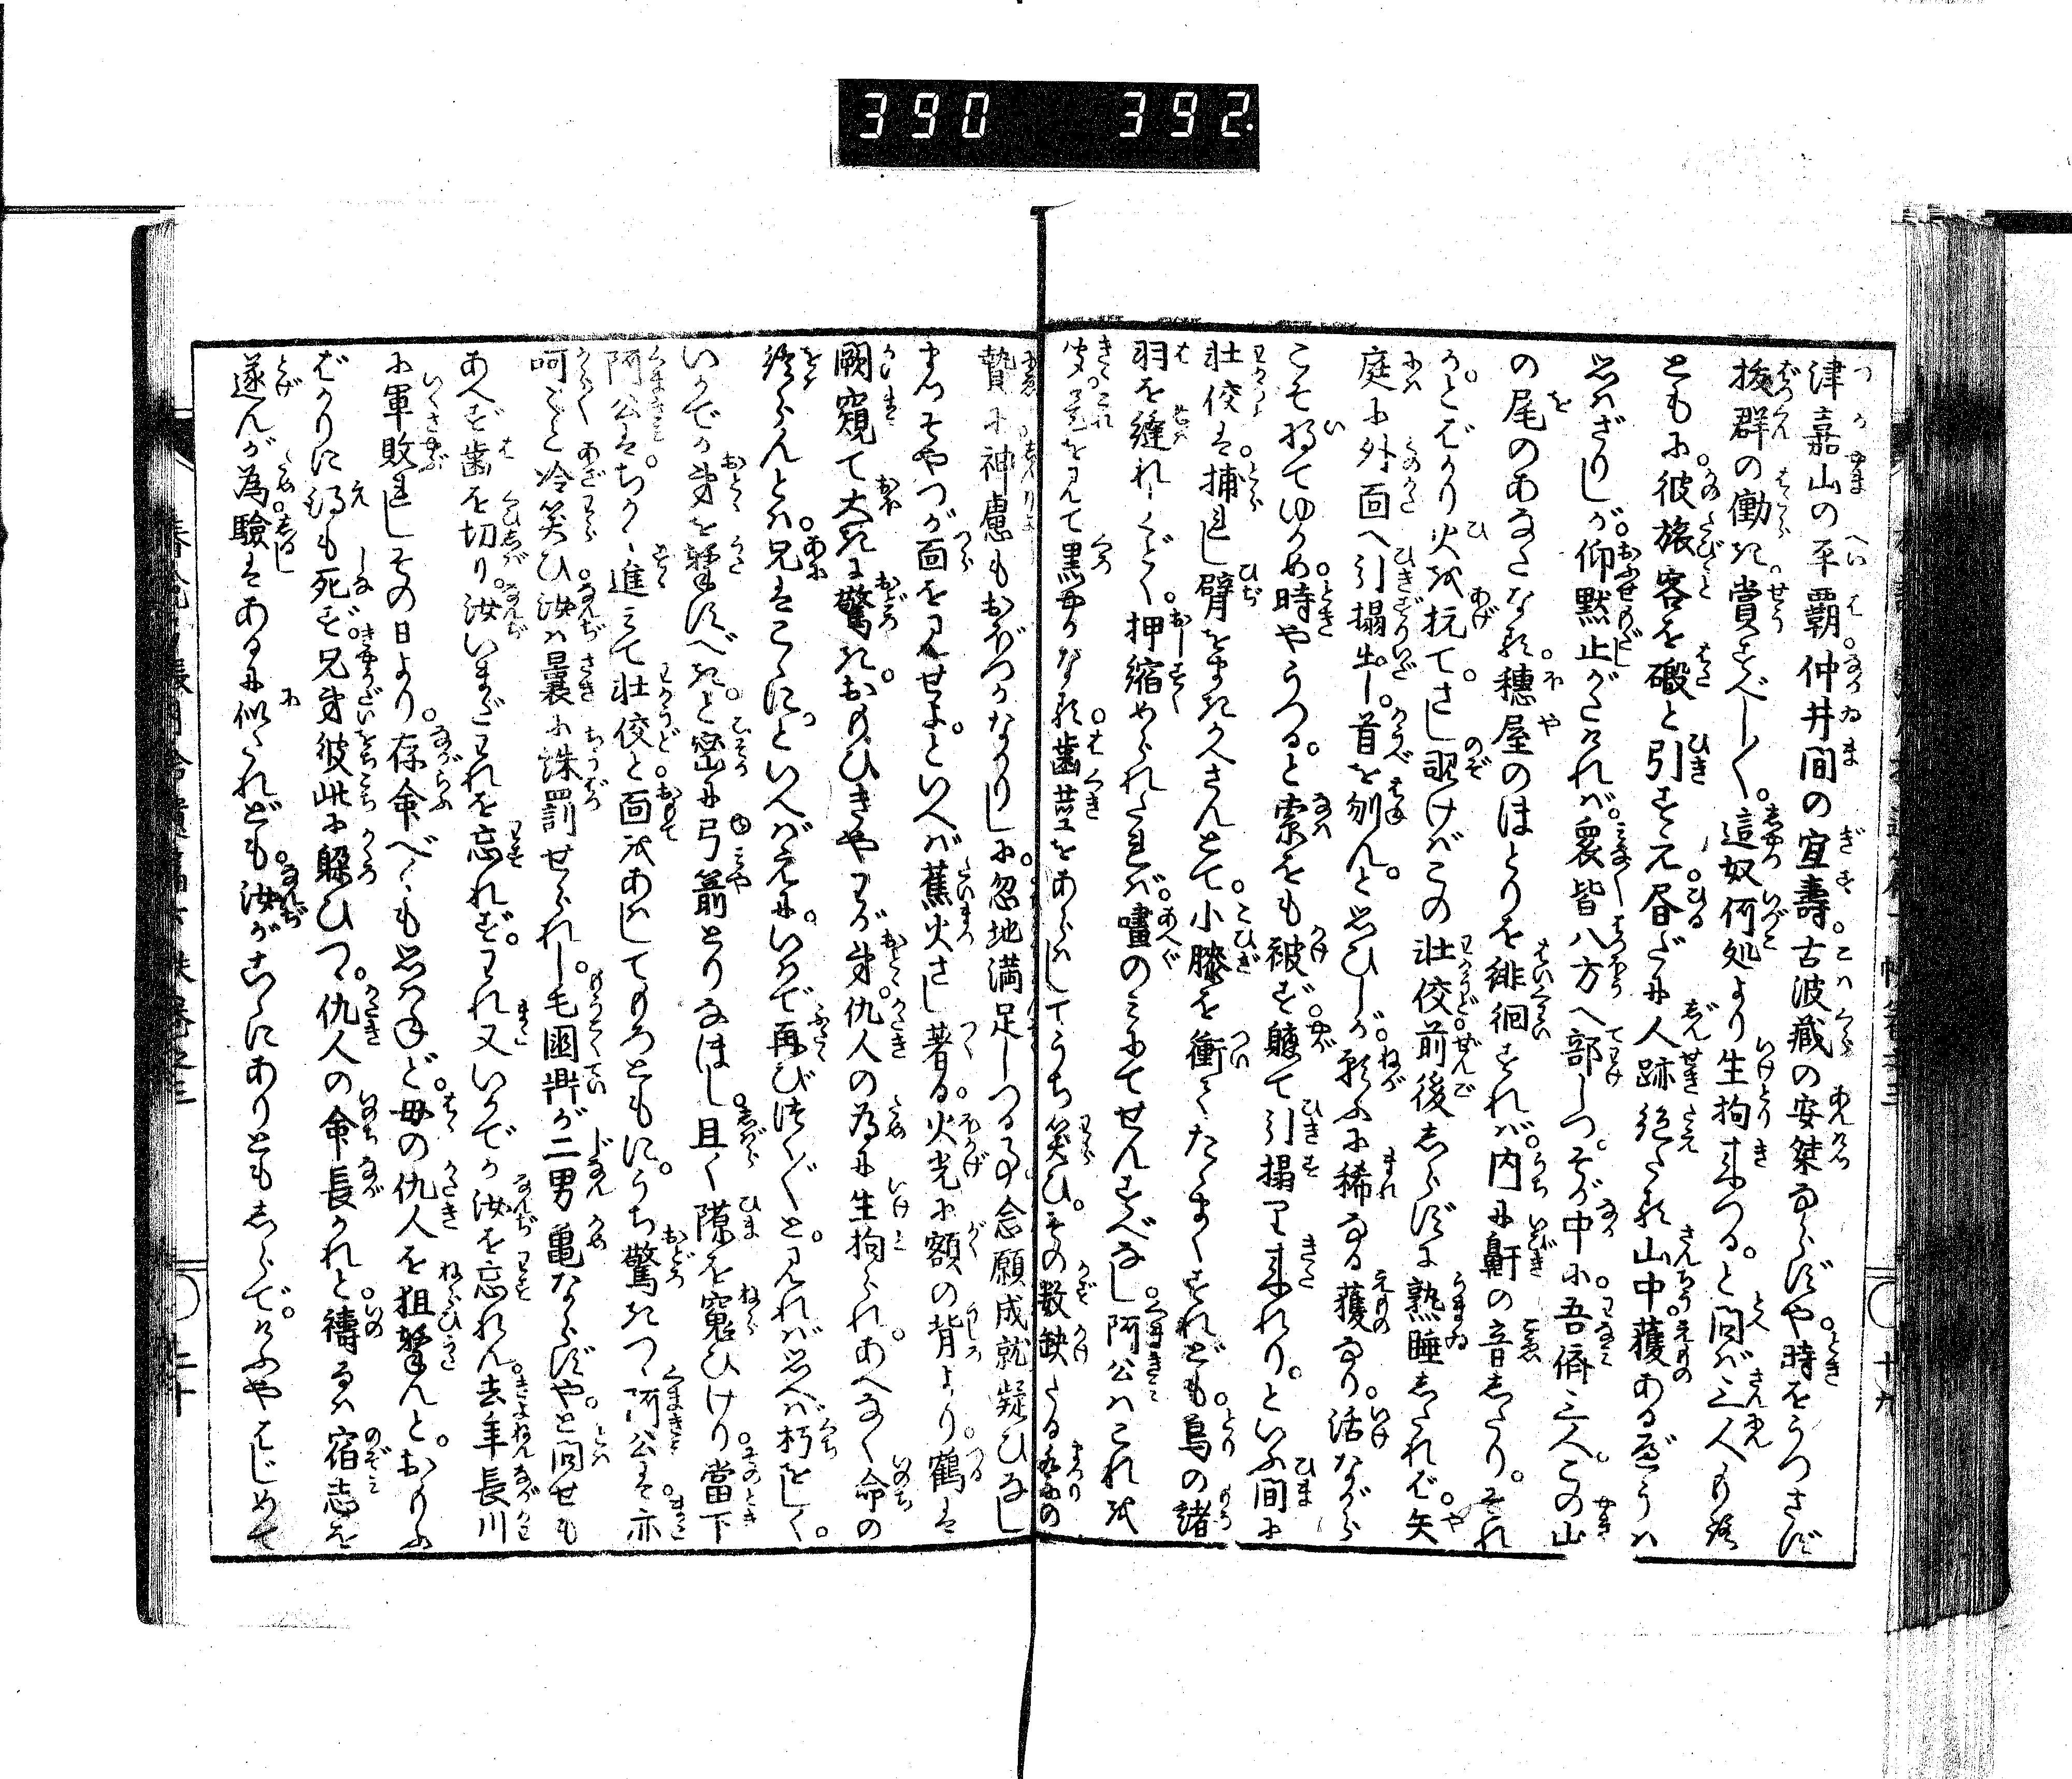 390 392
津嘉山の平覇。仲井間の宜壽。こハ古波蔵の安桀ならずや。時をうつさず
抜群の働き。賞すべし〳〵。這奴何処より生拘来つる。と問ば三人もろ
ともに。彼旅客を砥と引すえ。昼だに人跡絶たる山中。獲あるべうハ
思ハざりしが。仰黙止がたければ。衆皆八方へ部しつ。そが中に吾儕三人。この山
の尾のあなたなる。穂屋のほとりを徘徊すれば。内に鼾の音したり。それ
かとばかり火を抗て。さし覗けばこの壮佼。前後しらずに熟睡したれば。矢
庭に外面へ引搨出し。首を刎んと思ひしが。願ふに稀なる獲なり。活ながら
こそ将てゆかめ。時やうつると。索をも被ず。軈て引搨て来れり。といふ間に
壮佼は。捕れし臂をまきかへさんとて。小膝を衝てたちまくすれども。鳥の諸
羽を縫れしごとく。押縮められたれば。嘆のミにてせんすべなし。阿公ハこれを
うち笑ひ。その数缺たる
贄に。神慮もおぼつかなかりしに。忽地満足しつる事。念願成就疑ひなし
まづそやつが面を見せよ。といへば蕉火さし著る。火光に額の背より。鶴は
闕窺て大きに驚き。おもひきやわが弟。仇人の為に生拘られ。あへなく命の
終らんとハ。兄はこゝに。といへばえに。いかで再びつく〴〵と。見れば思へば朽をしく。
いかでか弟を撃すべき。と密に弓箭とりなほし。且く隙を窺ひけり。當下
阿公はちかく進みて。壮佼と面をあはしてもろともに。うち驚きつゝ阿公は亦
呵々と冷笑ひ。汝ハ曩に誅罰せられし。毛國鼎が二男亀ならずや。と問せも
あへず歯を切り。汝いまだわれを忘れず。われ又いかでか汝を忘れん。去年長川
に軍敗れしその日より。存命べくも思ハねど。母の仇人を狙撃んと。おもふ
ばかりに得も死ず。兄弟彼此に躱ひつゝ。仇人の命長かれと。祷るハ宿志を
遂んが為。驗はあるに似たれども。汝がこゝにありともしらで。けふやはじめて
十九
二十